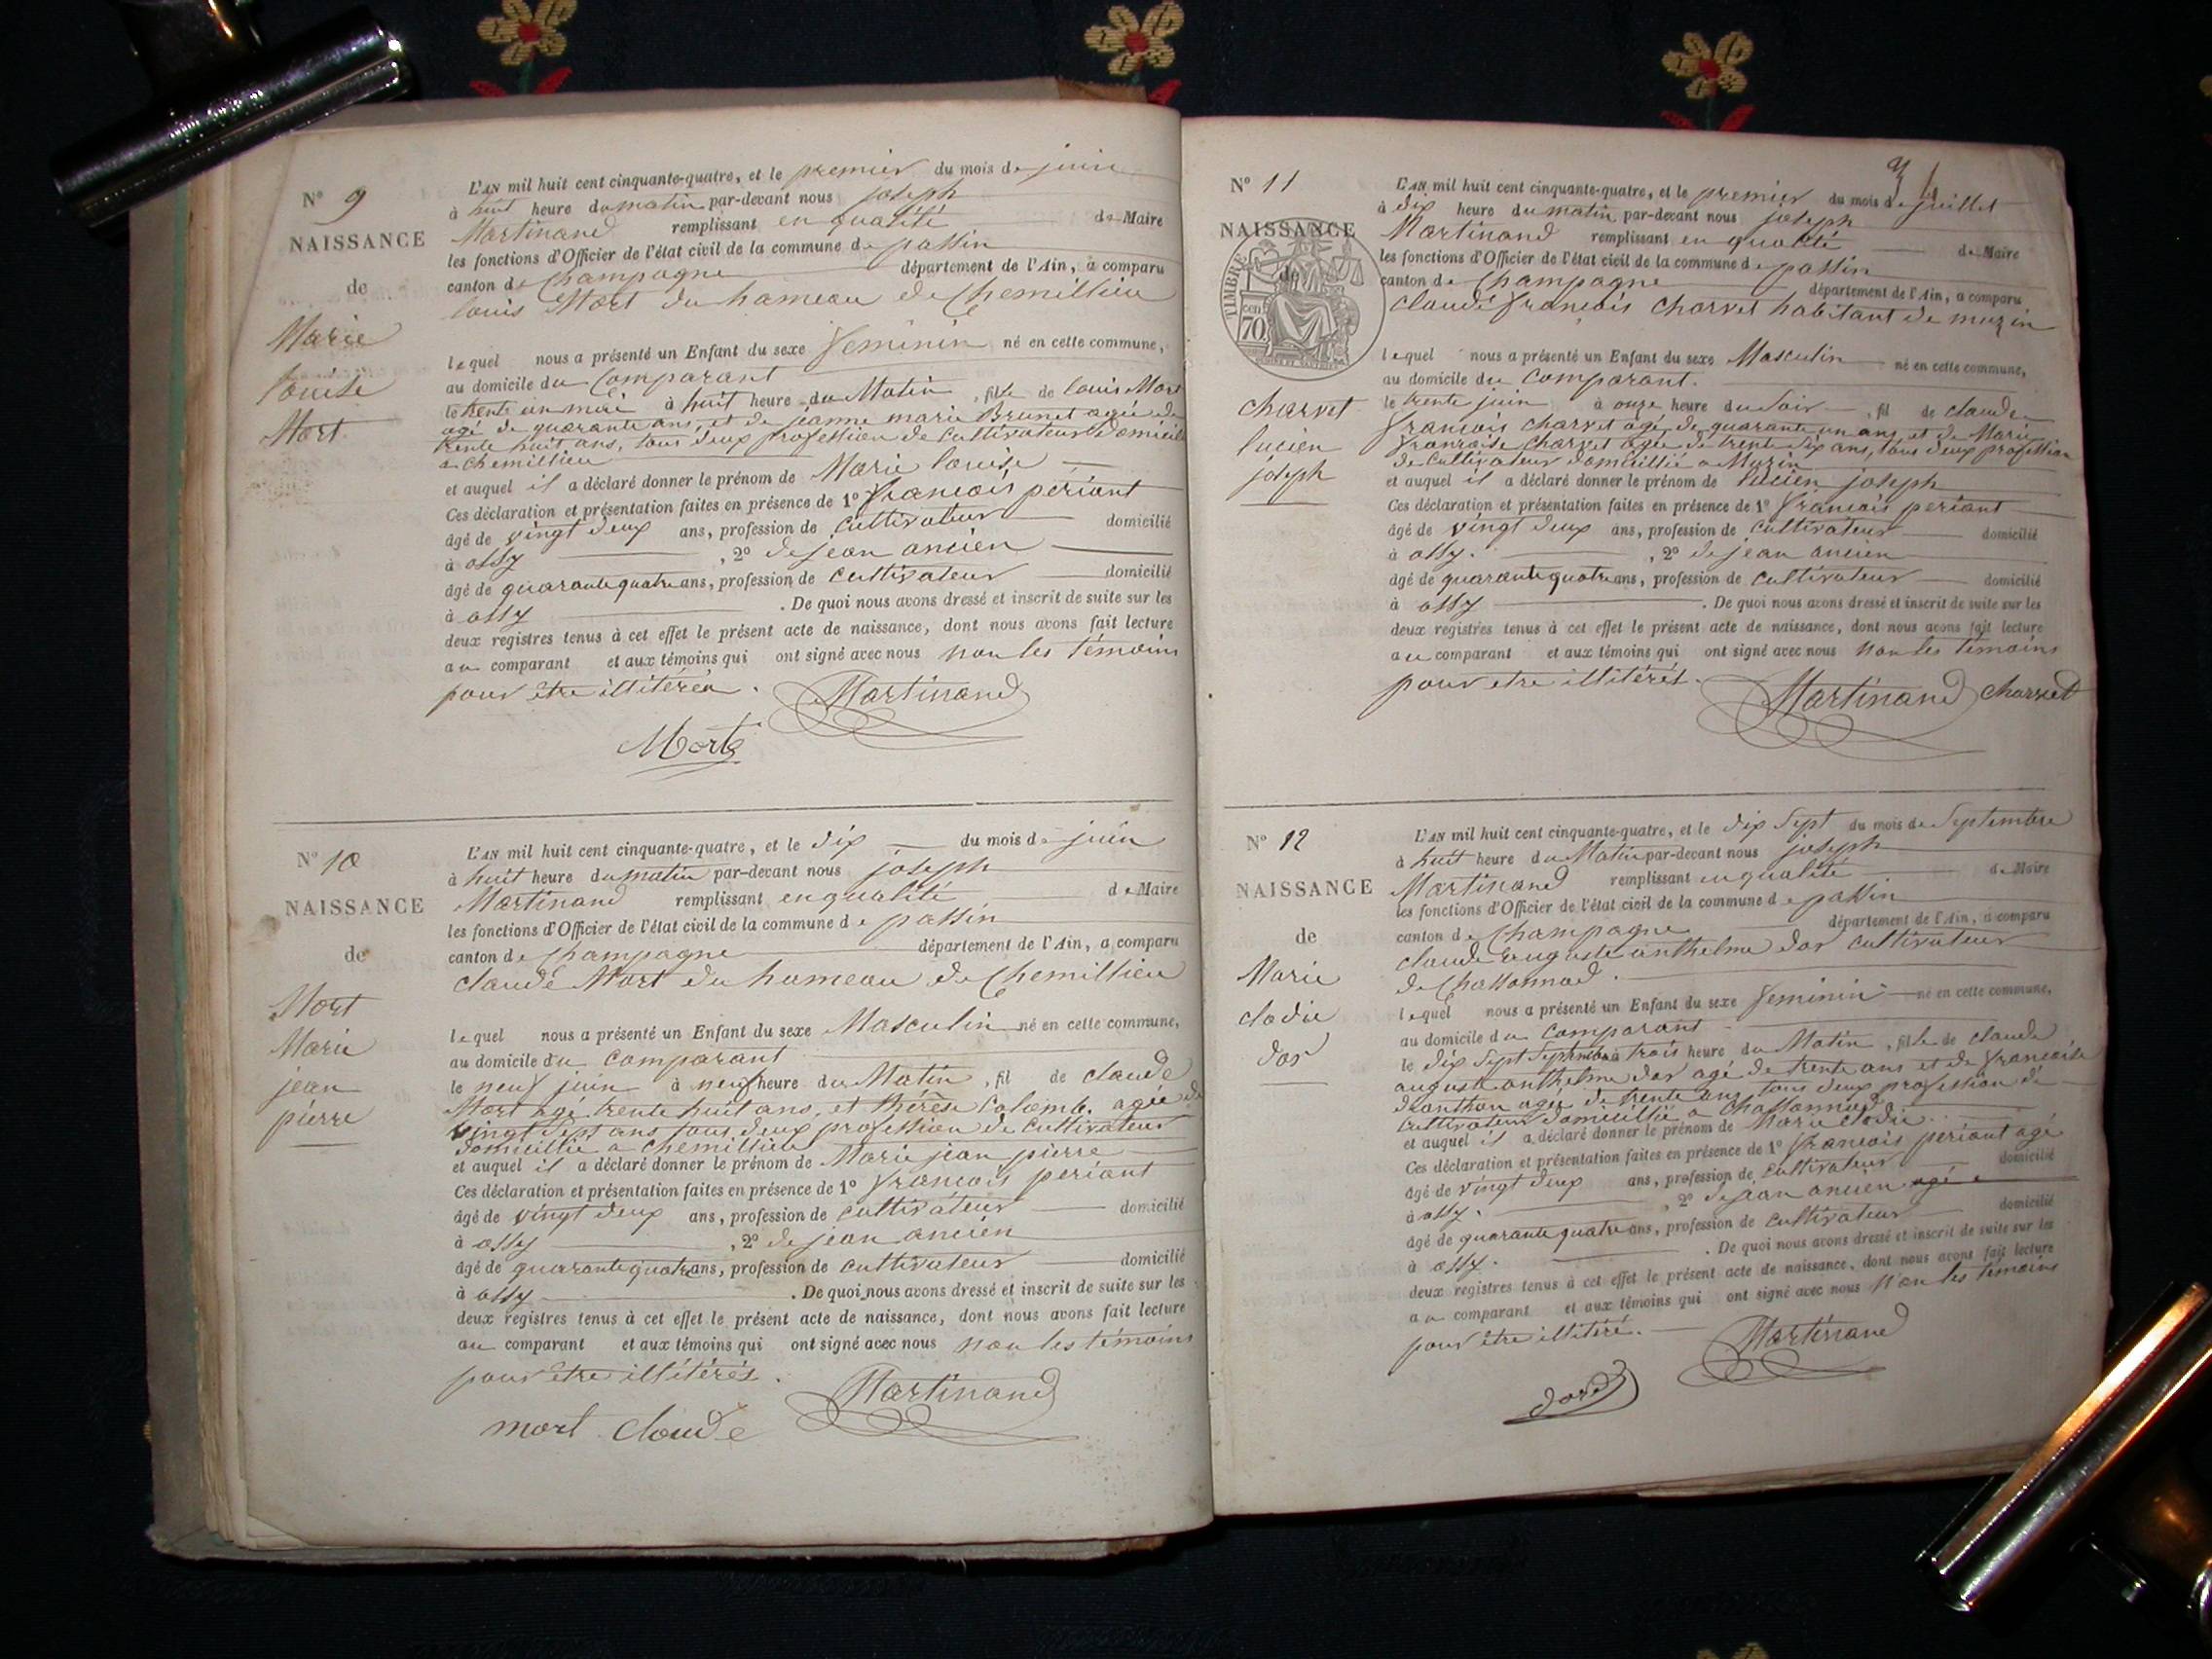 N° 9
NAISSANCE
de
Marie
louise
Mort
L'AN mil huit cent cinquante-quatre, et le premier du mois de juin
à huit heure du matin par-devant nous joseph
Martinand remplissant en qualité de Maire
les fonctions d'Officier de l'état civil de la commune de passin
canton de Champagne département de l'Ain, a comparu
louis Mort du hameau de Chemillieu
lequel nous a présenté un Enfant du sexe feminin né en cette commune,
au domicile du Comparant
le trente un mai à huit heure du Matin, fille de louis Mort
agé de quarante ans, et de jeanne marie Brunet agée de
trente huit ans, tous deux profession de Cultivateur domicilié
a chemillieu
et auquel il a déclaré donner le prénom de Marie louise
Ces déclaration et présentation faites en présence de 1° francois periant
âgé de vingt deux ans, profession de Cultivateur domicilié
à ossy , 2° de jean ancien
âgé de quarante quatre ans, profession de Cultivateur domicilié
à ossy . De quoi nous avons dressé et inscrit de suite sur les
deux registres tenus à cet effet le présent acte de naissance, dont nous avons fait lecture
au comparant et aux témoins qui ont signé avec nous non les témoins
pour être illitérés.
Martinand
Mort
N° 10
NAISSANCE
de
Mort
Marie
jean
pierre
L'AN mil huit cent cinquante-quatre, et le dix du mois de juin
à huit heure du matin par-devant nous joseph
Martinand remplissant en qualité de Maire
les fonctions d'Officier de l'état civil de la commune de passin
canton de Champagne département de l'Ain, a comparu
claude Mort du hameau de Chemillieu
lequel nous a présenté un Enfant du sexe Masculin né en cette commune,
au domicile du Comparant
le neuf juin à neuf heure du Matin, fil de claude
Mort agé trente huit ans, et thérèse Colomb. agée de
vingt sept ans tous deux profession de Cultivateur
domicillié a Chemillieu
et auquel il a déclaré donner le prénom de Marie jean pierre
Ces déclaration et présentation faites en présence de 1° francois periant
âgé de vingt deux ans, profession de cultivateur domicilié
à ossy , 2° de jean ancien
âgé de quarante quatre ans, profession de Cultivateur domicilié
à ossy . De quoi nous avons dressé et inscrit de suite sur les
deux registres tenus à cet effet le présent acte de naissance, dont nous avons fait lecture
au comparant et aux témoins qui ont signé avec nous non les témoins
pour être illitérés.
Martinand
mort Claude
N° 11
NAISSANCE
de
TIMBRE
cen
70
charvet
lucien
joseph
L'AN mil huit cent cinquante-quatre, et le premier du mois de juillet
à dix heure du matin par-devant nous joseph
Martinand remplissant en qualité de Maire
les fonctions d'Officier de l'état civil de la commune de passin
canton de Champagne département de l'Ain, a comparu
claude francois charvet habitant de muzin
lequel nous a présenté un Enfant du sexe Masculin né en cette commune,
au domicile du Comparant.
le trente juin à onze heure du soir, fil de claude
francois charvet agé de quarante un ans, et de Marie
francoise charvet agée de trente six ans, tous deux profession
de cultivateur domicillié a Muzin
et auquel il a déclaré donner le prénom de lucien joseph
Ces déclaration et présentation faites en présence de 1° francois periant
âgé de vingt deux ans, profession de cultivateur domicilié
à ossy. , 2° de jean ancien
âgé de quarante quatre ans, profession de Cultivateur domicilié
à ossy . De quoi nous avons dressé et inscrit de suite sur les
deux registres tenus à cet effet le présent acte de naissance, dont nous avons fait lecture
au comparant et aux témoins qui ont signé avec nous non les témoins
pour etre illitérés.
Martinand charvet
N° 12
NAISSANCE
de
Marie
clodie
dor
L'AN mil huit cent cinquante-quatre, et le dix sept du mois de Septembre
à huit heure du Matin par-devant nous joseph
Martinand remplissant en qualité de Maire
les fonctions d'Officier de l'état civil de la commune de passin
canton de Champagne département de l'Ain, a comparu
claude auguste anthelme dor cultivateur
de Chassonnod.
lequel nous a présenté un Enfant du sexe feminin né en cette commune,
au domicile du comparant
le dix sept Septembre à trois heure du Matin, fille de claude
auguste anthelme dor agé de trente ans et de francoise
agée de trente ans tous deux profession de
cultivateur domicillié a Chassonnod
et auquel il a déclaré donner le prénom de Marie clodie.
Ces déclaration et présentation faites en présence de 1° francois periant agé
âgé de vingt deux ans, profession de cultivateur domicilié
à ossy. , 2° de jean ancien agé
âgé de quarante quatre ans, profession de cultivateur domicilié
à ossy. . De quoi nous avons dressé et inscrit de suite sur les
deux registres tenus à cet effet le présent acte de naissance, dont nous avons fait lecture
au comparant et aux témoins qui ont signé avec nous non les témoins
pour être illitéré.
Martinand